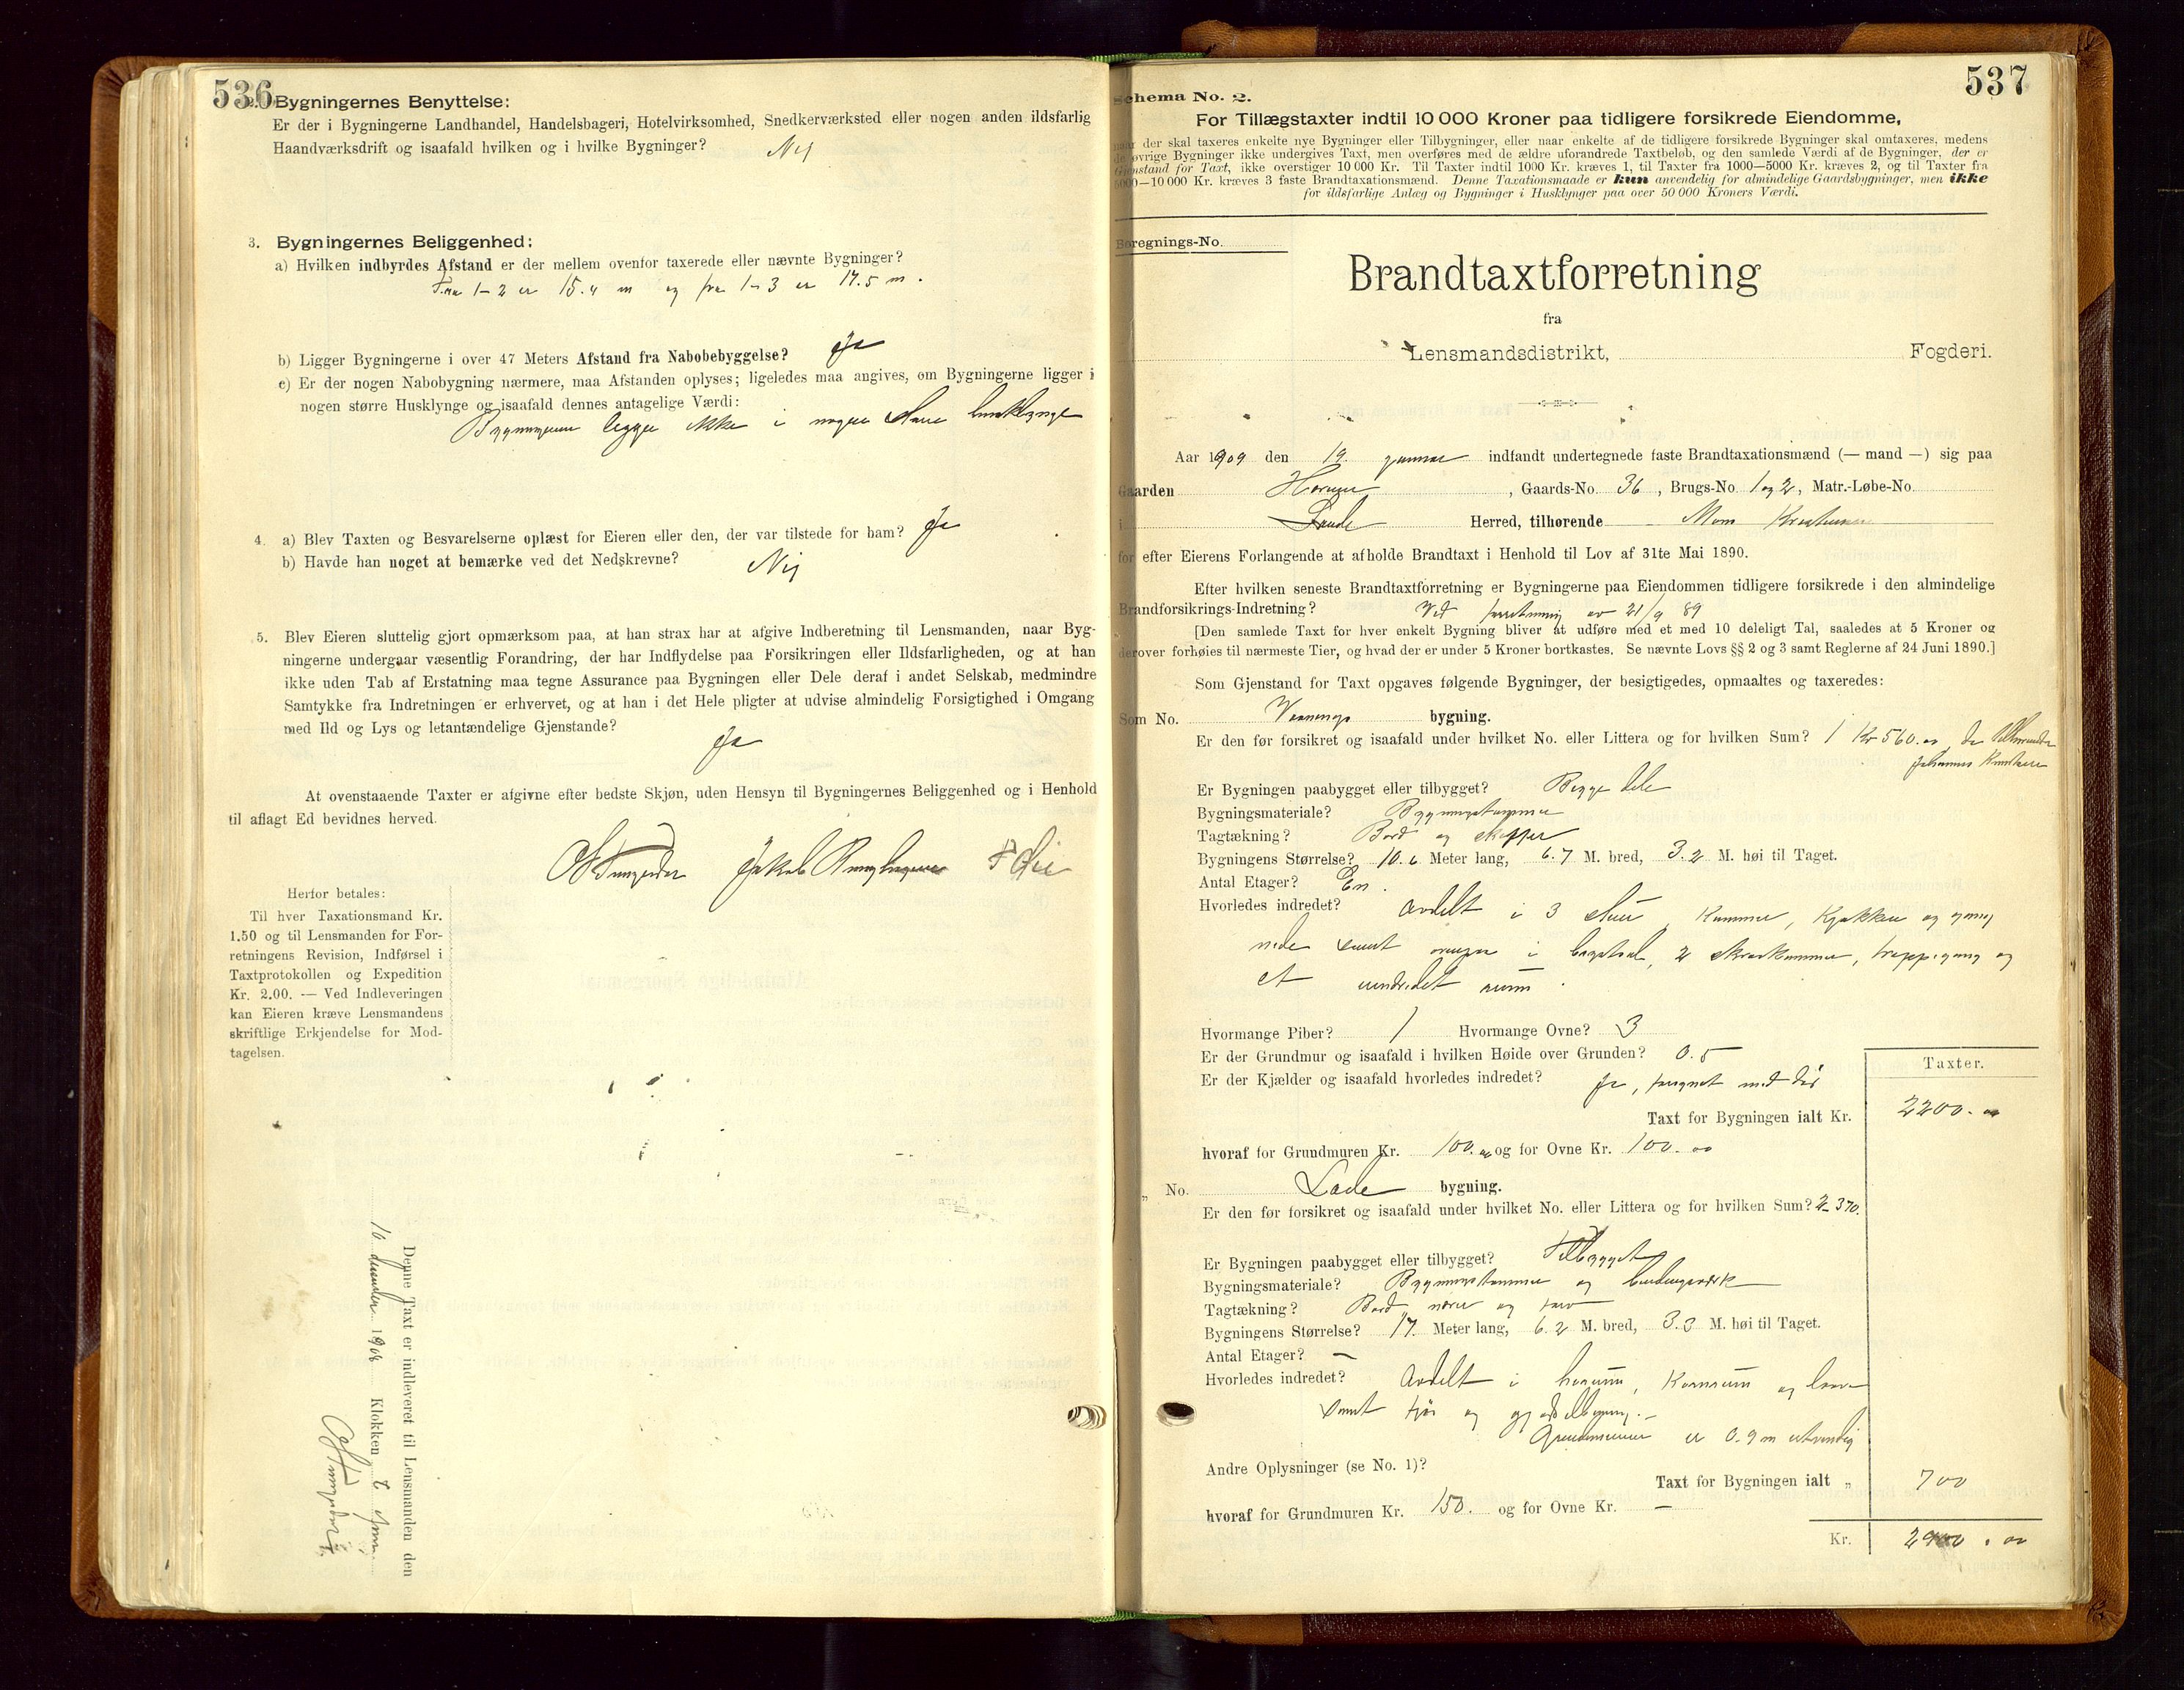 536
2. Bygningernes Benyttelse:
Er der i Bygningerne Landhandel, Handelsbageri, Hotelvirksomhed, Snedkerværksted eller nogen anden ildsfarlig
Haandværksdrift og isaafald hvilken og i hvilke Bygninger? Nej
3. Bygningernes Beliggenhed:
a) Hvilken indbyrdes Afstand er der mellem ovenfor taxerede eller nævnte Bygninger?
Fra 1-2 er 15.4 m og fra 1-3 er 17.5 m.
b) Ligger Bygningerne i over 47 Meters Afstand fra Nabobebyggelse? Ja
c) Er der nogen Nabobygning nærmere, maa Afstanden oplyses; ligeledes maa angives, om Bygningerne ligger i
nogen større Husklynge og isaafald dennes antagelige Værdi:
Bygningerne ligger ikke i nogen større husklynge
4. a) Blev Taxten og Besvarelserne oplæst for Eieren eller den, der var tilstede for ham? Ja
b) Havde han noget at bemærke ved det Nedskrevne? Nej
5. Blev Eieren sluttelig gjort opmærksom paa, at han strax har at afgive Indberetning til Lensmanden, naar Byg-
ningerne undergaar væsentlig Forandring, der har Indflydelse paa Forsikringen eller Ildsfarligheden, og at han
ikke uden Tab af Erstatning maa tegne Assurance paa Bygningen eller Dele deraf i andet Selskab, medmindre
Samtykke fra Indretningen er erhvervet, og at han i det Hele pligter at udvise almindelig Forsigtighed i Omgang
med Ild og Lys og letantændelige Gjenstande?
Ja
At ovenstaaende Taxter er afgivne efter bedste Skjøn, uden Hensyn til Bygningernes Beliggenhed og i Henhold
til aflagt Ed bevidnes herved.
Jakob
Herfor betales:
Til hver Taxationsmand Kr.
1.50 og til Lensmanden for For-
retningens Revision, Indførsel i
Taxtprotokollen og Expedition
Kr. 2.00. — Ved Indleveringen
kan Eieren kræve Lensmandens
skriftlige Erkjendelse for Mod-
tagelsen.
Denne Taxt er indleveret til Lensmanden den
10 desember 1908 Klokken
537
Schema No. 2.
For Tillægstaxter indtil 10 000 Kroner paa tidligere forsikrede Eiendomme,
naar der skal taxeres enkelte nye Bygninger eller Tilbygninger, eller naar enkelte af de tidligere forsikrede Bygninger skal omtaxeres, medens
de øvrige Bygninger ikke undergives Taxt, men overføres med de ældre uforandrede Taxtbeløb, og den samlede Værdi af de Bygninger, der er
Gjenstand for Taxt, ikke overstiger 10 000 Kr. Til Taxter indtil 1000 Kr. kræves 1, til Taxter fra 1000—5000 Kr. kræves 2, og til Taxter fra
5000—10 000 Kr. kræves 3 faste Brandtaxationsmænd. Denne Taxationsmaade er kun anvendelig for almindelige Gaardsbygninger, men ikke
for ildsfarlige Anlæg og Bygninger i Husklynger paa over 50 000 Kroners Værdi.
Boregnings-No.
Brandtaxtforretning
fra
Lensmandsdistrikt, Fogderi.
Aar 1909 den 19. januar indfandt undertegnede faste Brandtaxationsmænd (— mand —) sig paa
Gaarden , Gaards-No. 36, Brugs-No. 1 og 2, Matr.-Løbe-No.
i Herred, tilhørende
for efter Eierens Forlangende at afholde Brandtaxt i Henhold til Lov af 31te Mai 1890.
Efter hvilken seneste Brandtaxtforretning er Bygningerne paa Eiendommen tidligere forsikrede i den almindelige
Brandforsikrings-Indretning? Ved forretning av 21/9 89
[Den samlede Taxt for hver enkelt Bygning bliver at udføre med et med 10 deleligt Tal, saaledes at 5 Kroner og
derover forhøies til nærmeste Tier, og hvad der er under 5 Kroner bortkastes. Se nævnte Lovs §§ 2 og 3 samt Reglerne af 24 Juni 1890.]
Som Gjenstand for Taxt opgaves følgende Bygninger, der besigtigedes, opmaaltes og taxeredes:
Som No. Vaanings bygning.
Er den før forsikret og isaafald under hvilket No. eller Littera og for hvilken Sum? 1 Kr 560.00 da tilhørende
Johannes
Er Bygningen paabygget eller tilbygget? Begge dele
Bygningsmateriale? Bygningstømmer
Tagtækning? Bord og skiffer
Bygningens Størrelse? 10.6 Meter lang, 6.7 M. bred, 3.2 M. høi til Taget.
Antal Etager? En.
Hvorledes indredet? Avdelt i 3 stuer, Kammer, Kjøkken og gang
nede samt ovenpaa i 2 skraakammer, trappegang og
et uindredet rum.
Hvormange Piber? 1 Hvormange Ovne? 3
Er der Grundmur og isaafald i hvilken Høide over Grunden? 0.5
Er der Kjælder og isaafald hvorledes indredet? Ja, forsynet med dør
Taxter.
Taxt for Bygningen ialt Kr. 2200.00
hvoraf for Grundmuren Kr. 100.00 og for Ovne Kr. 100.00
„ No. Lade bygning.
Er den før forsikret og isaafald under hvilket No. eller Littera og for hvilken Sum? 2 - 370.
Er Bygningen paabygget eller tilbygget? Tilbygget
Bygningsmateriale? Bygningstømmer og bindingsverk
Tagtækning? Bord, næver og torv
Bygningens Størrelse? 17. Meter lang, 6.2 M. bred, 3.3 M. høi til Taget.
Antal Etager? —
Hvorledes indredet? Avdelt i hørum, Kornrum og laave
samt fjøs og gjødselbygning.-
Grundmuren er 0.9 m utvendig
Andre Oplysninger (se No. 1)?
Taxt for Bygningen ialt „ 700
hvoraf for Grundmuren Kr. 150. og for Ovne Kr. —
Kr. 2900.00